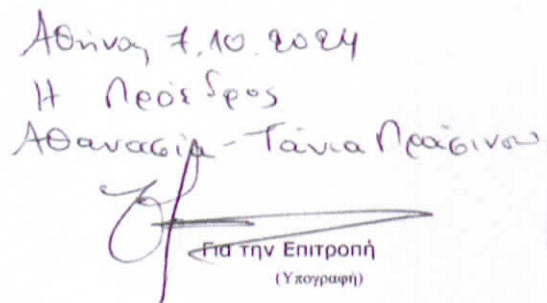 Αθήνα, 7.10.2024
Η Πρόεδρος
Αθανασία - Τάνια Πράσινου
Για την Επιτροπή
(Υπογραφή)